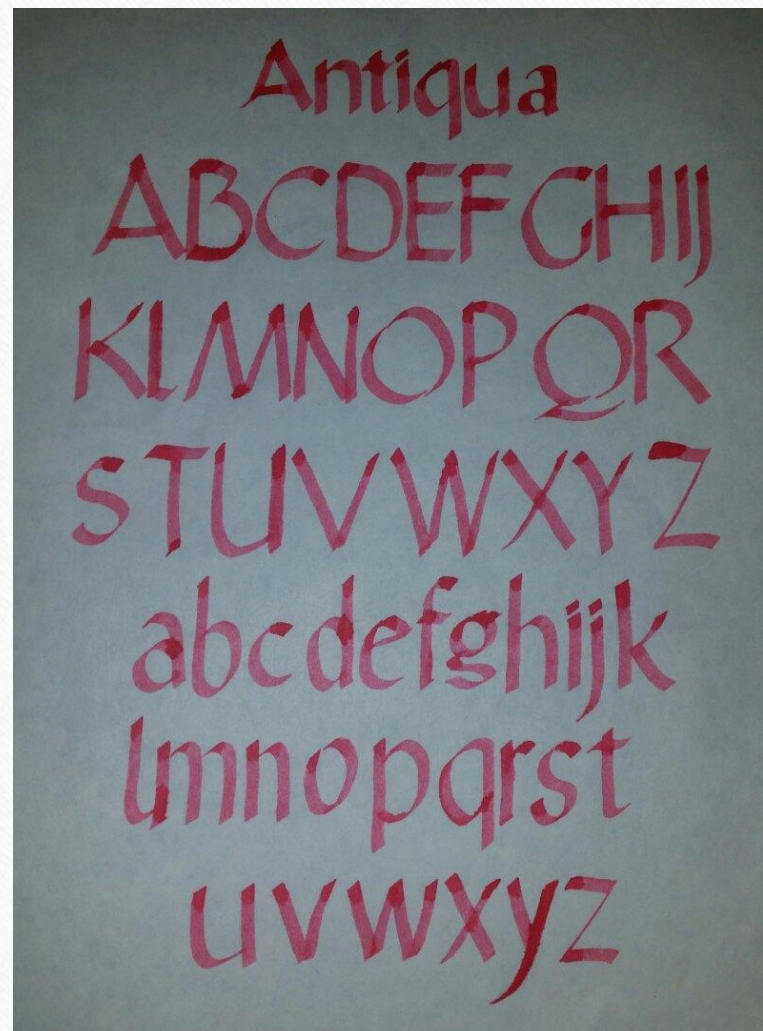 Antiqua
ABCDEFGHIJ
KLMNOPQR
STUVWXYZ
abcdefghijk
lmnopqrst
uvwxyz